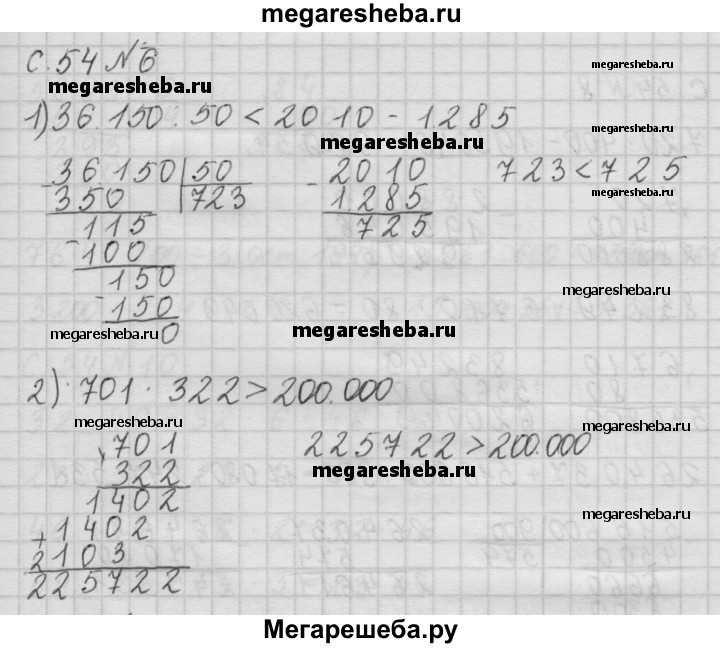 megaresheba.ru
с.54 №6
megaresheba.ru
megaresheba.ru
1) 36.150 : 50 < 2010 - 1285
megaresheba.ru
36.150 | 50
350 | 723
115
- 100
150
- 150
0
- 2010
1285
725
723 < 725
megaresheba.ru
megaresheba.ru
megaresheba.ru
megaresheba.ru
2) 701 · 322 > 200.000
megaresheba.ru
701
322
1402
+ 1402
2103
225722
225722 > 200.000
megaresheba.ru
megaresheba.ru
megaresheba.ru
Мегарешеба.ру